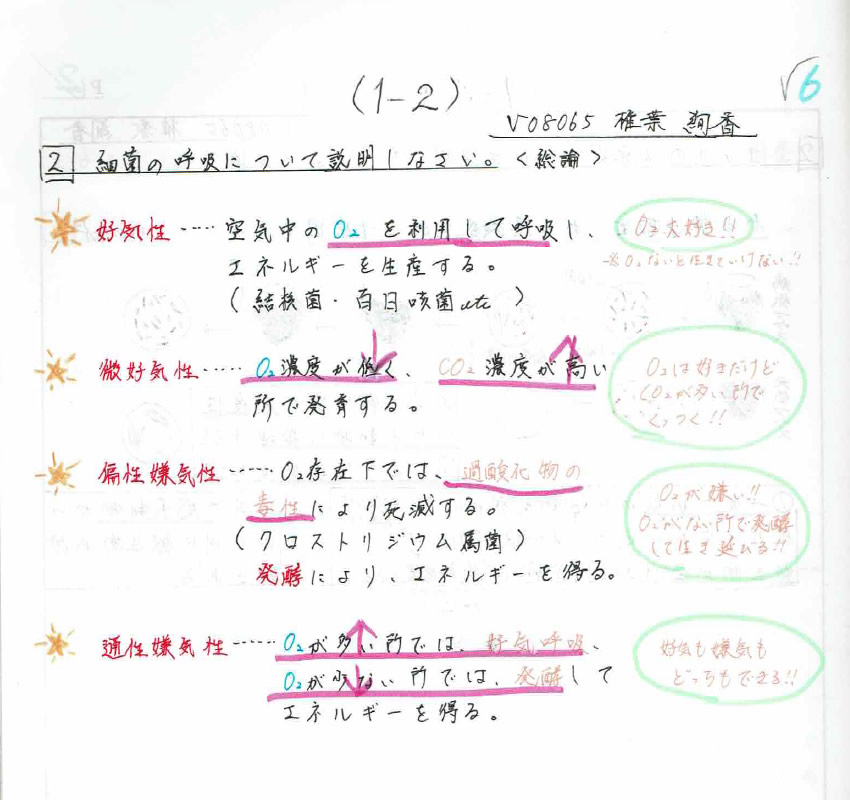 (1-2)
√6
V08065 椎葉 絢香
2 細菌の呼吸について説明しなさい。〈総論〉
好気性 ····· 空気中の O₂ を利用して呼吸し、
エネルギーを生産する。
(結核菌・百日咳菌 etc )
O₂大好き!!
※O₂ないと生きていけない!!
微好気性 ····· O₂濃度が低く、CO₂ 濃度が高い
所で発育する。
O₂は好きだけど
CO₂が多い所で
くっつく!!
偏性嫌気性 ······ O₂存在下では、過酸化物の
毒性により死滅する。
(クロストリジウム属菌)
発酵により、エネルギーを得る。
O₂が嫌い!!
O₂がない所で発酵
して生き延びる!!
通性嫌気性 ······ O₂が多い所では、好気呼吸、
O₂が少ない所では、発酵して
エネルギーを得る。
好気も嫌気も
どっちもできる!!